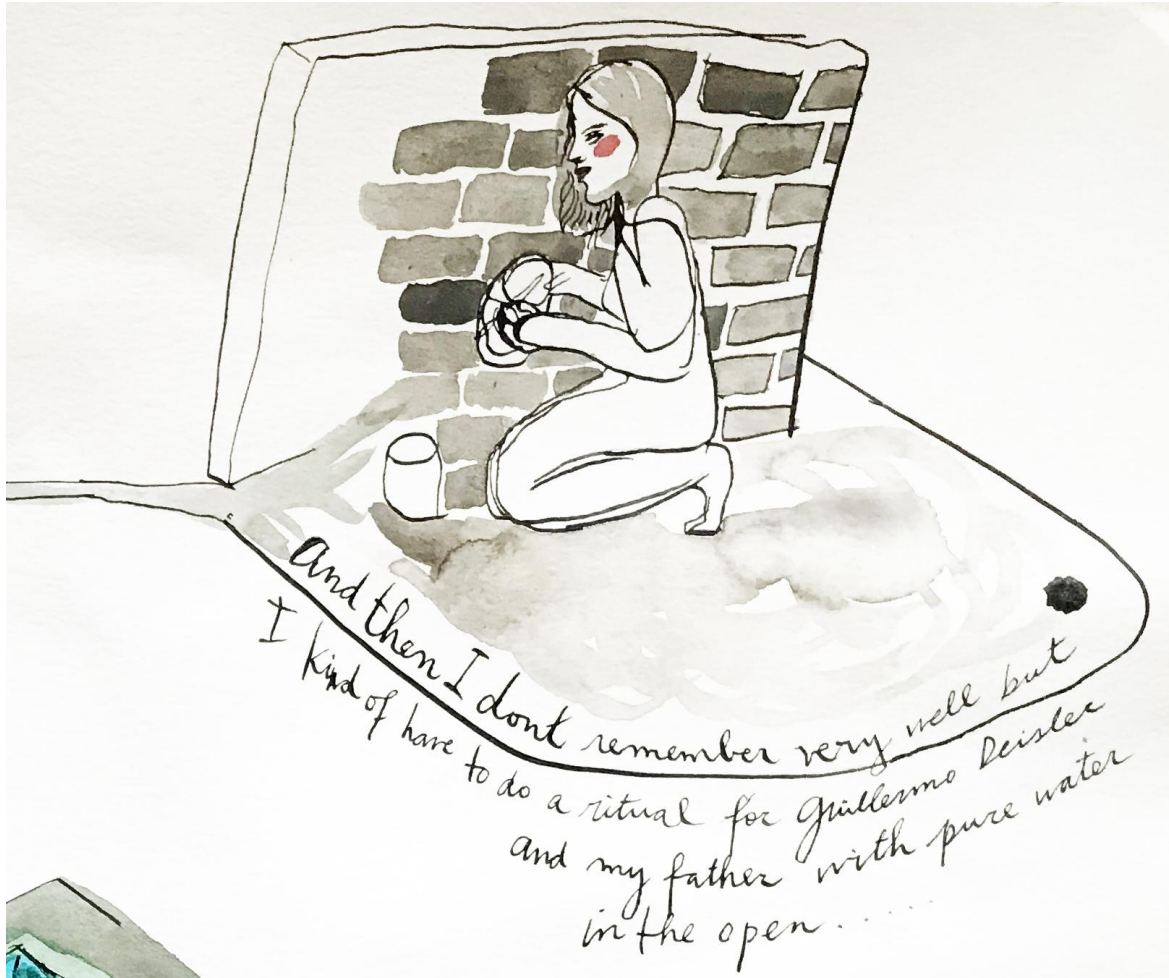 And then I dont remember very well but
I kind of have to do a ritual for Guillermo Deisler
and my father with pure water
in the open......